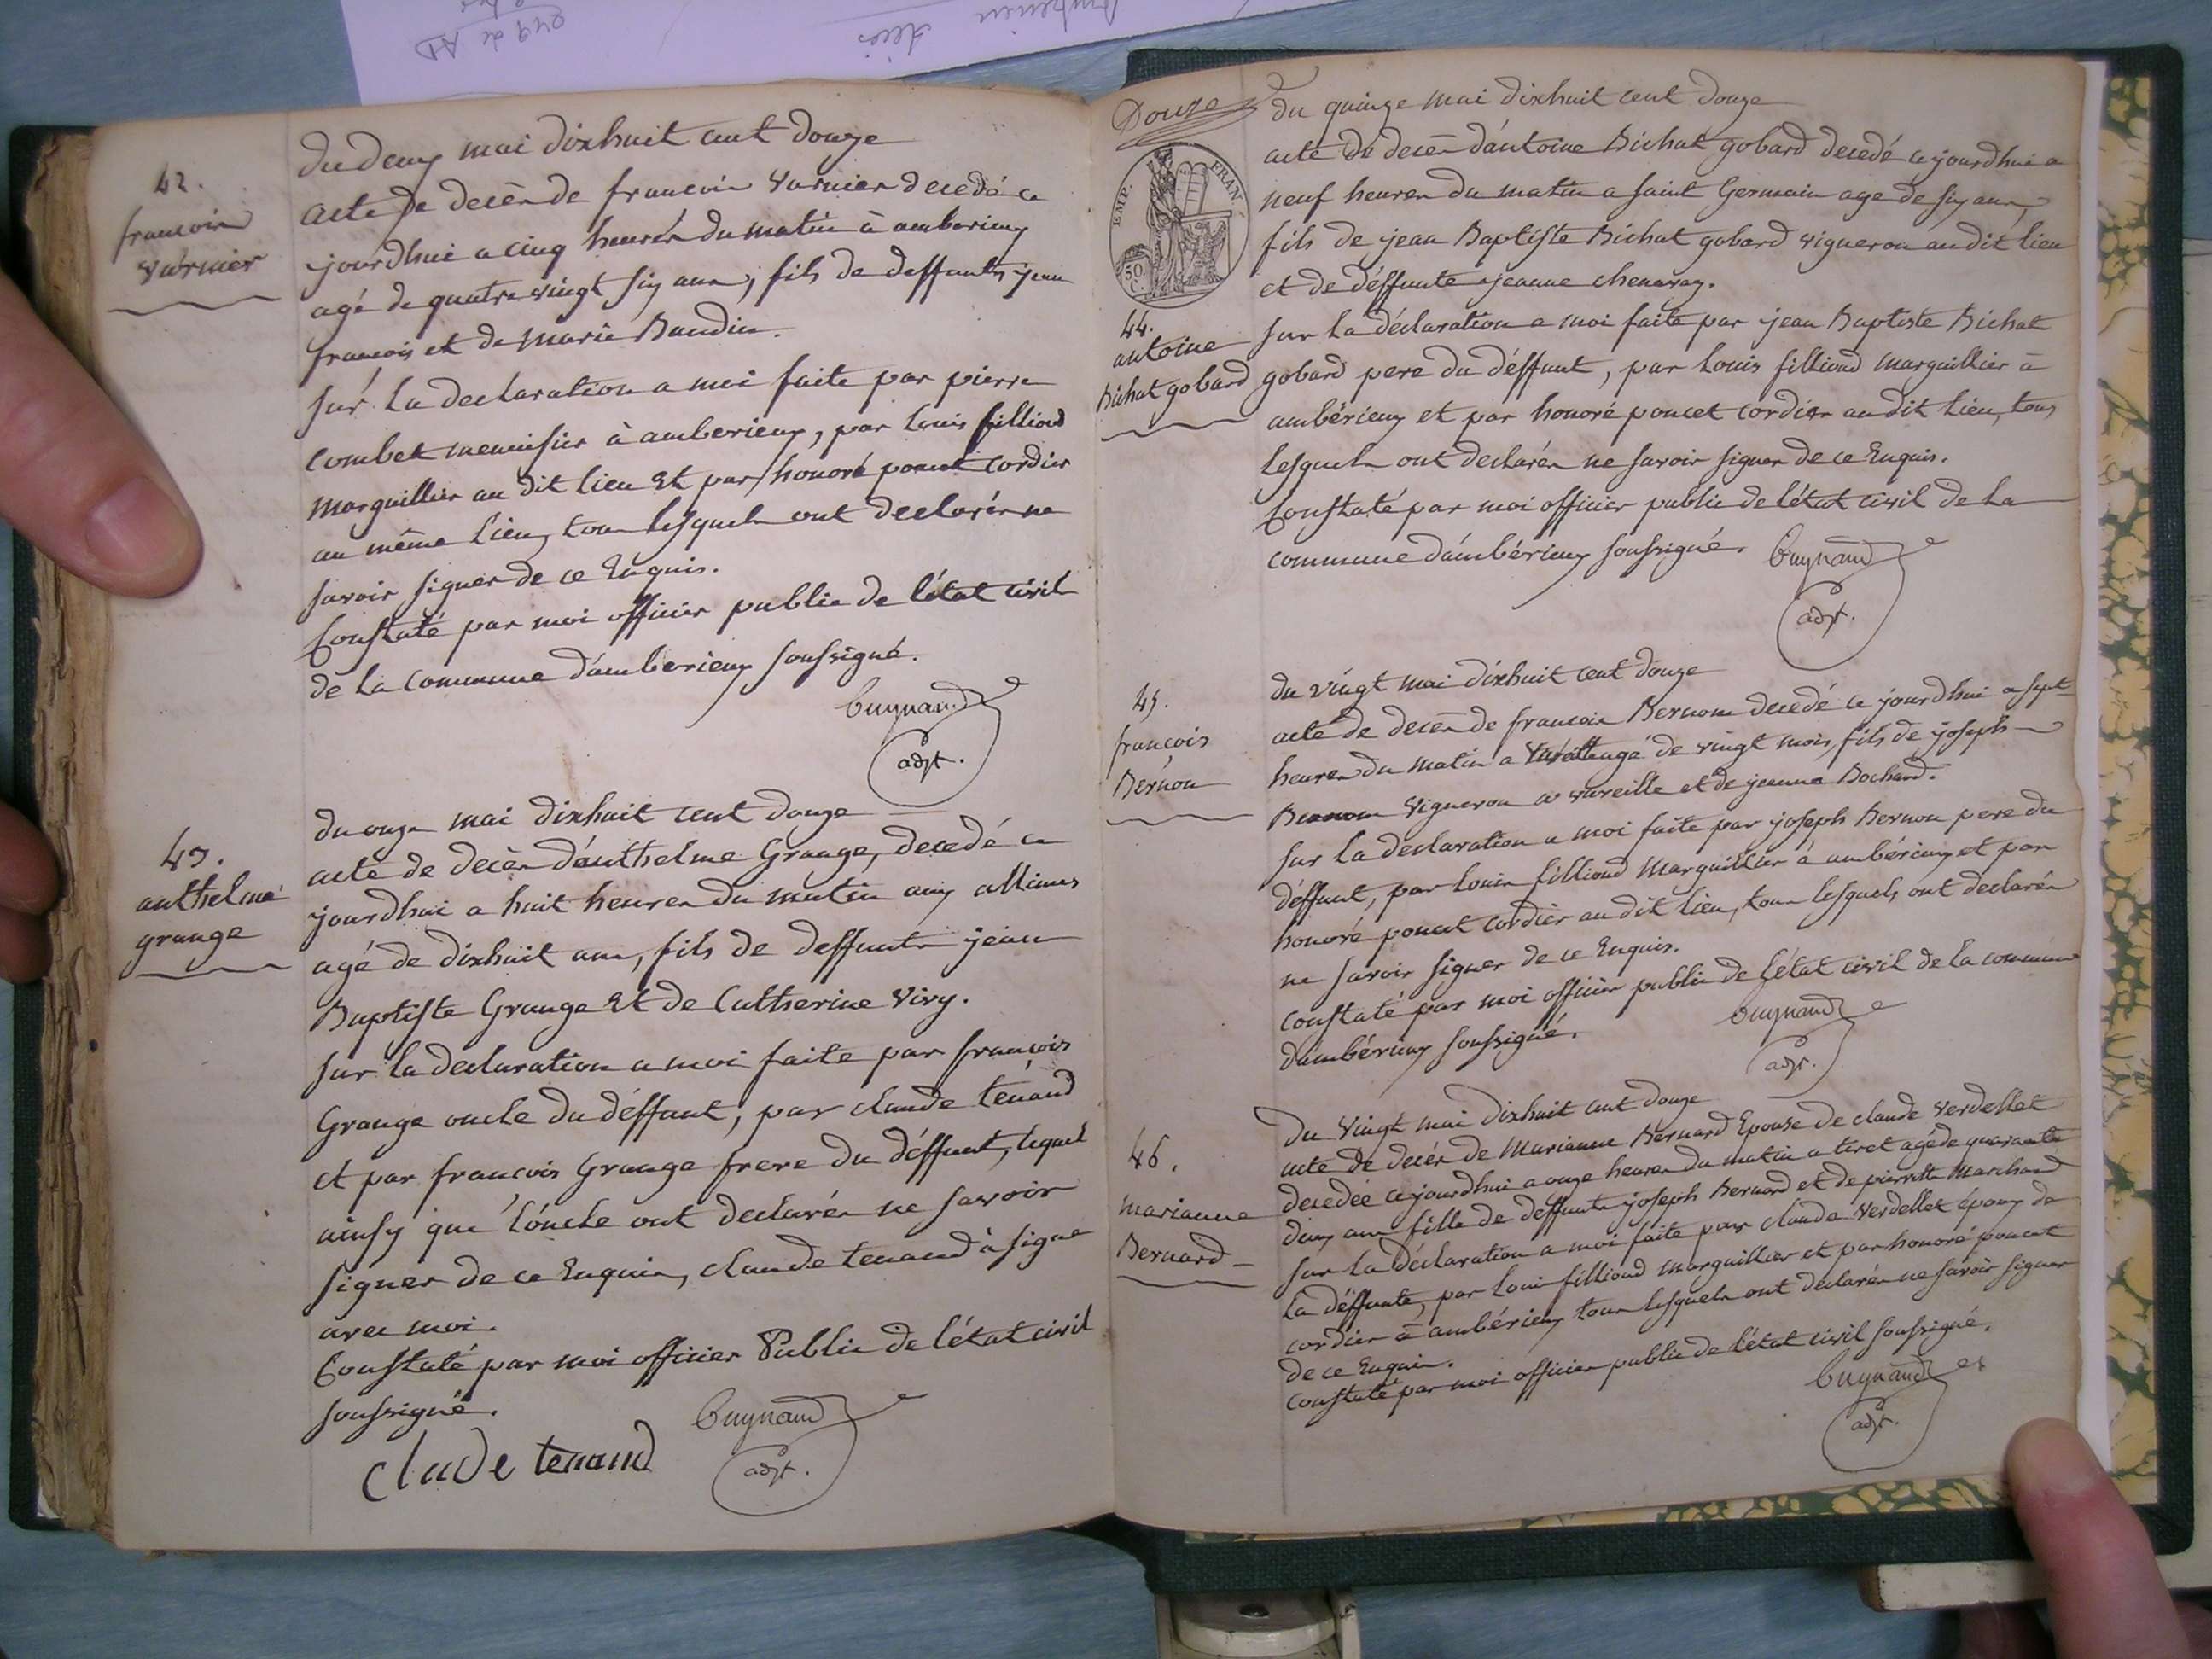 42.
francois
varnier
du deux mai dixhuit cent douze
acte de decès de francois Varnier decedé ce
jourdhui a cinq heures du matin à amberieux
agé de quatre vingt six ans, fils de deffunts jean
francois et de marie Baudin.
sur la declaration a moi faite par pierre
Combet menuisier à amberieux, par Louis filliond
Marguillier au dit lieu Et par honoré poncet cordier
au même lieu, tous lesquels ont declarés ne
savoir signer de ce Enquis.
Constaté par moi officier public de l'état civil
de la commune d'amberieux soussigné.
Guynand
adjt.
43.
anthelme
grange
du onze mai dixhuit cent douze
acte de decès d'anthelme Grange, decedé ce
jourdhui a huit heures du matin aux allimes
agé de dixhuit ans, fils de deffunts jean
Baptiste Grange Et de Catherine Vivy.
sur la declaration a moi faite par francois
Grange oncle du déffunt, par claude tenand
et par francois Grange frere du déffunt, lequel
ainsy que l'oncle ont declarés ne savoir
signer de ce Enquis, claude tenand à signé
avec moi.
Constaté par moi officier Public de l'état civil
soussigné.
Guynand
adjt.
clade tenand
Douze
EMP. FRAN.
50 C.
44.
antoine
Bichat gobard
du quinze mai dixhuit cent douze
acte de decès d'antoine Bichat gobard decedé ce jourdhui a
neuf heures du matin a saint Germain age de six ans,
fils de jean Baptiste Bichat gobard vigneron audit lieu
et de déffunte jeanne chenavaz.
sur la déclaration a moi faite par jean Baptiste Bichat
gobard pere du déffunt, par Louis filliond marguillier à
ambérieux et par honoré poncet cordier au dit lieu, tous
lesquels ont declarés ne savoir signer de ce Enquis.
Constaté par moi officier public de l'état civil de la
commune d'ambérieux soussigné.
Guynand
adjt.
45.
francois
Bernon
du vingt mai dixhuit cent douze
acte de decès de francois Bernon decedé ce jourdhui a sept
heures du matin a vareille agé de vingt mois, fils de joseph
Bernon vigneron a vareille et de jeanne Bochard.
sur la declaration a moi faite par joseph Bernon pere du
déffunt, par Louis filliond Marguillier à ambérieux et par
honoré poncet cordier au dit lieu, tous lesquels ont declarés
ne savoir signer de ce Enquis.
constaté par moi officier public de l'état civil de la commune
d'ambérieux soussigné.
Guynand
adjt.
46.
marianne
Bernard
Du Vingt mai dixhuit cent douze
acte de decès de Marianne Bernard Epouse de claude Verdellet
decedée ce jourdhui a onze heures du matin a tiret agée de quarante
deux ans fille de deffunts joseph Bernard et de pierrette Marchand
sur la déclaration a moi faite par claude Verdellet époux de
la déffunte, par Louis filliond marguillier et par honoré poncet
cordier à ambérieux tous lesquels ont declarés ne savoir signer
de ce Enquis.
constaté par moi officier public de l'état civil soussigné.
Guynand
adjt.